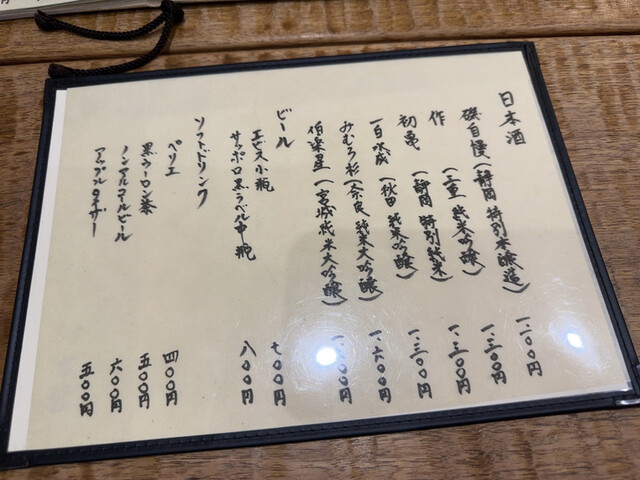 日本酒
磯自慢（静岡 特別本醸造） 一、一〇〇円
作 （三重 純米吟醸） 一、三〇〇円
初亀 （静岡 特別純米） 一、三〇〇円
一白水成 （秋田 純米吟醸） 一、三〇〇円
みむろ杉（奈良 純米大吟醸） 一、六〇〇円
伯楽星（宮城 純米大吟醸）
ビール
ヱビス小瓶 七〇〇円
サッポロ黒ラベル中瓶 八〇〇円
ソフトドリンク
ペリエ 四〇〇円
黒ウーロン茶 五〇〇円
ノンアルコールビール 六〇〇円
アップルタイザー 五〇〇円